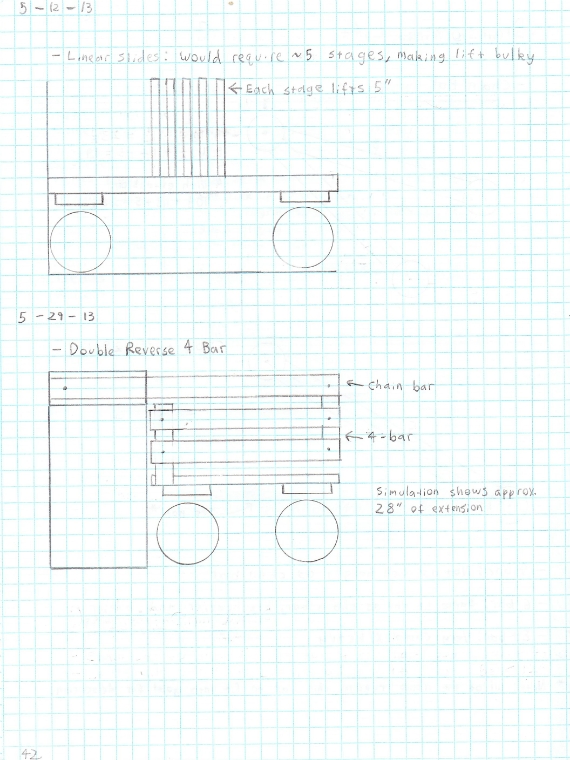 5-12-13
- Linear slides: would require ~5 stages, making lift bulky
← Each stage lifts 5"
5-29-13
- Double Reverse 4 Bar
← Chain bar
← 4-bar
Simulation shows approx.
28" of extension
42